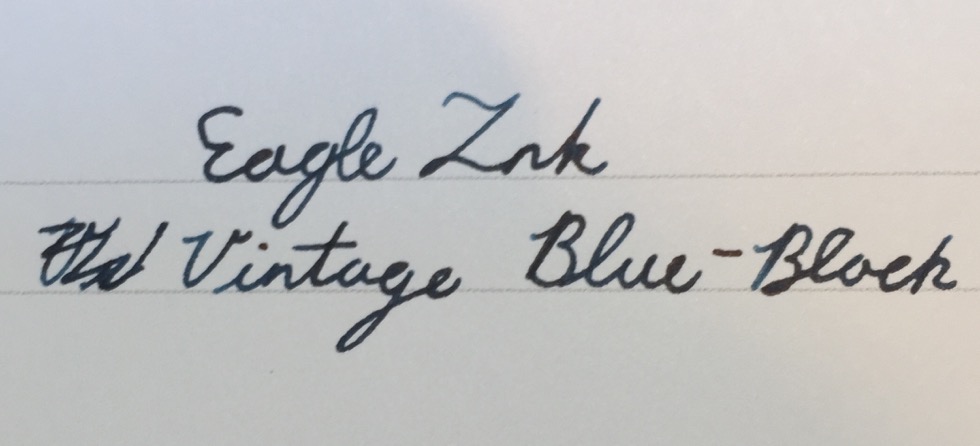 Eagle Ink
Vintage Blue-Black